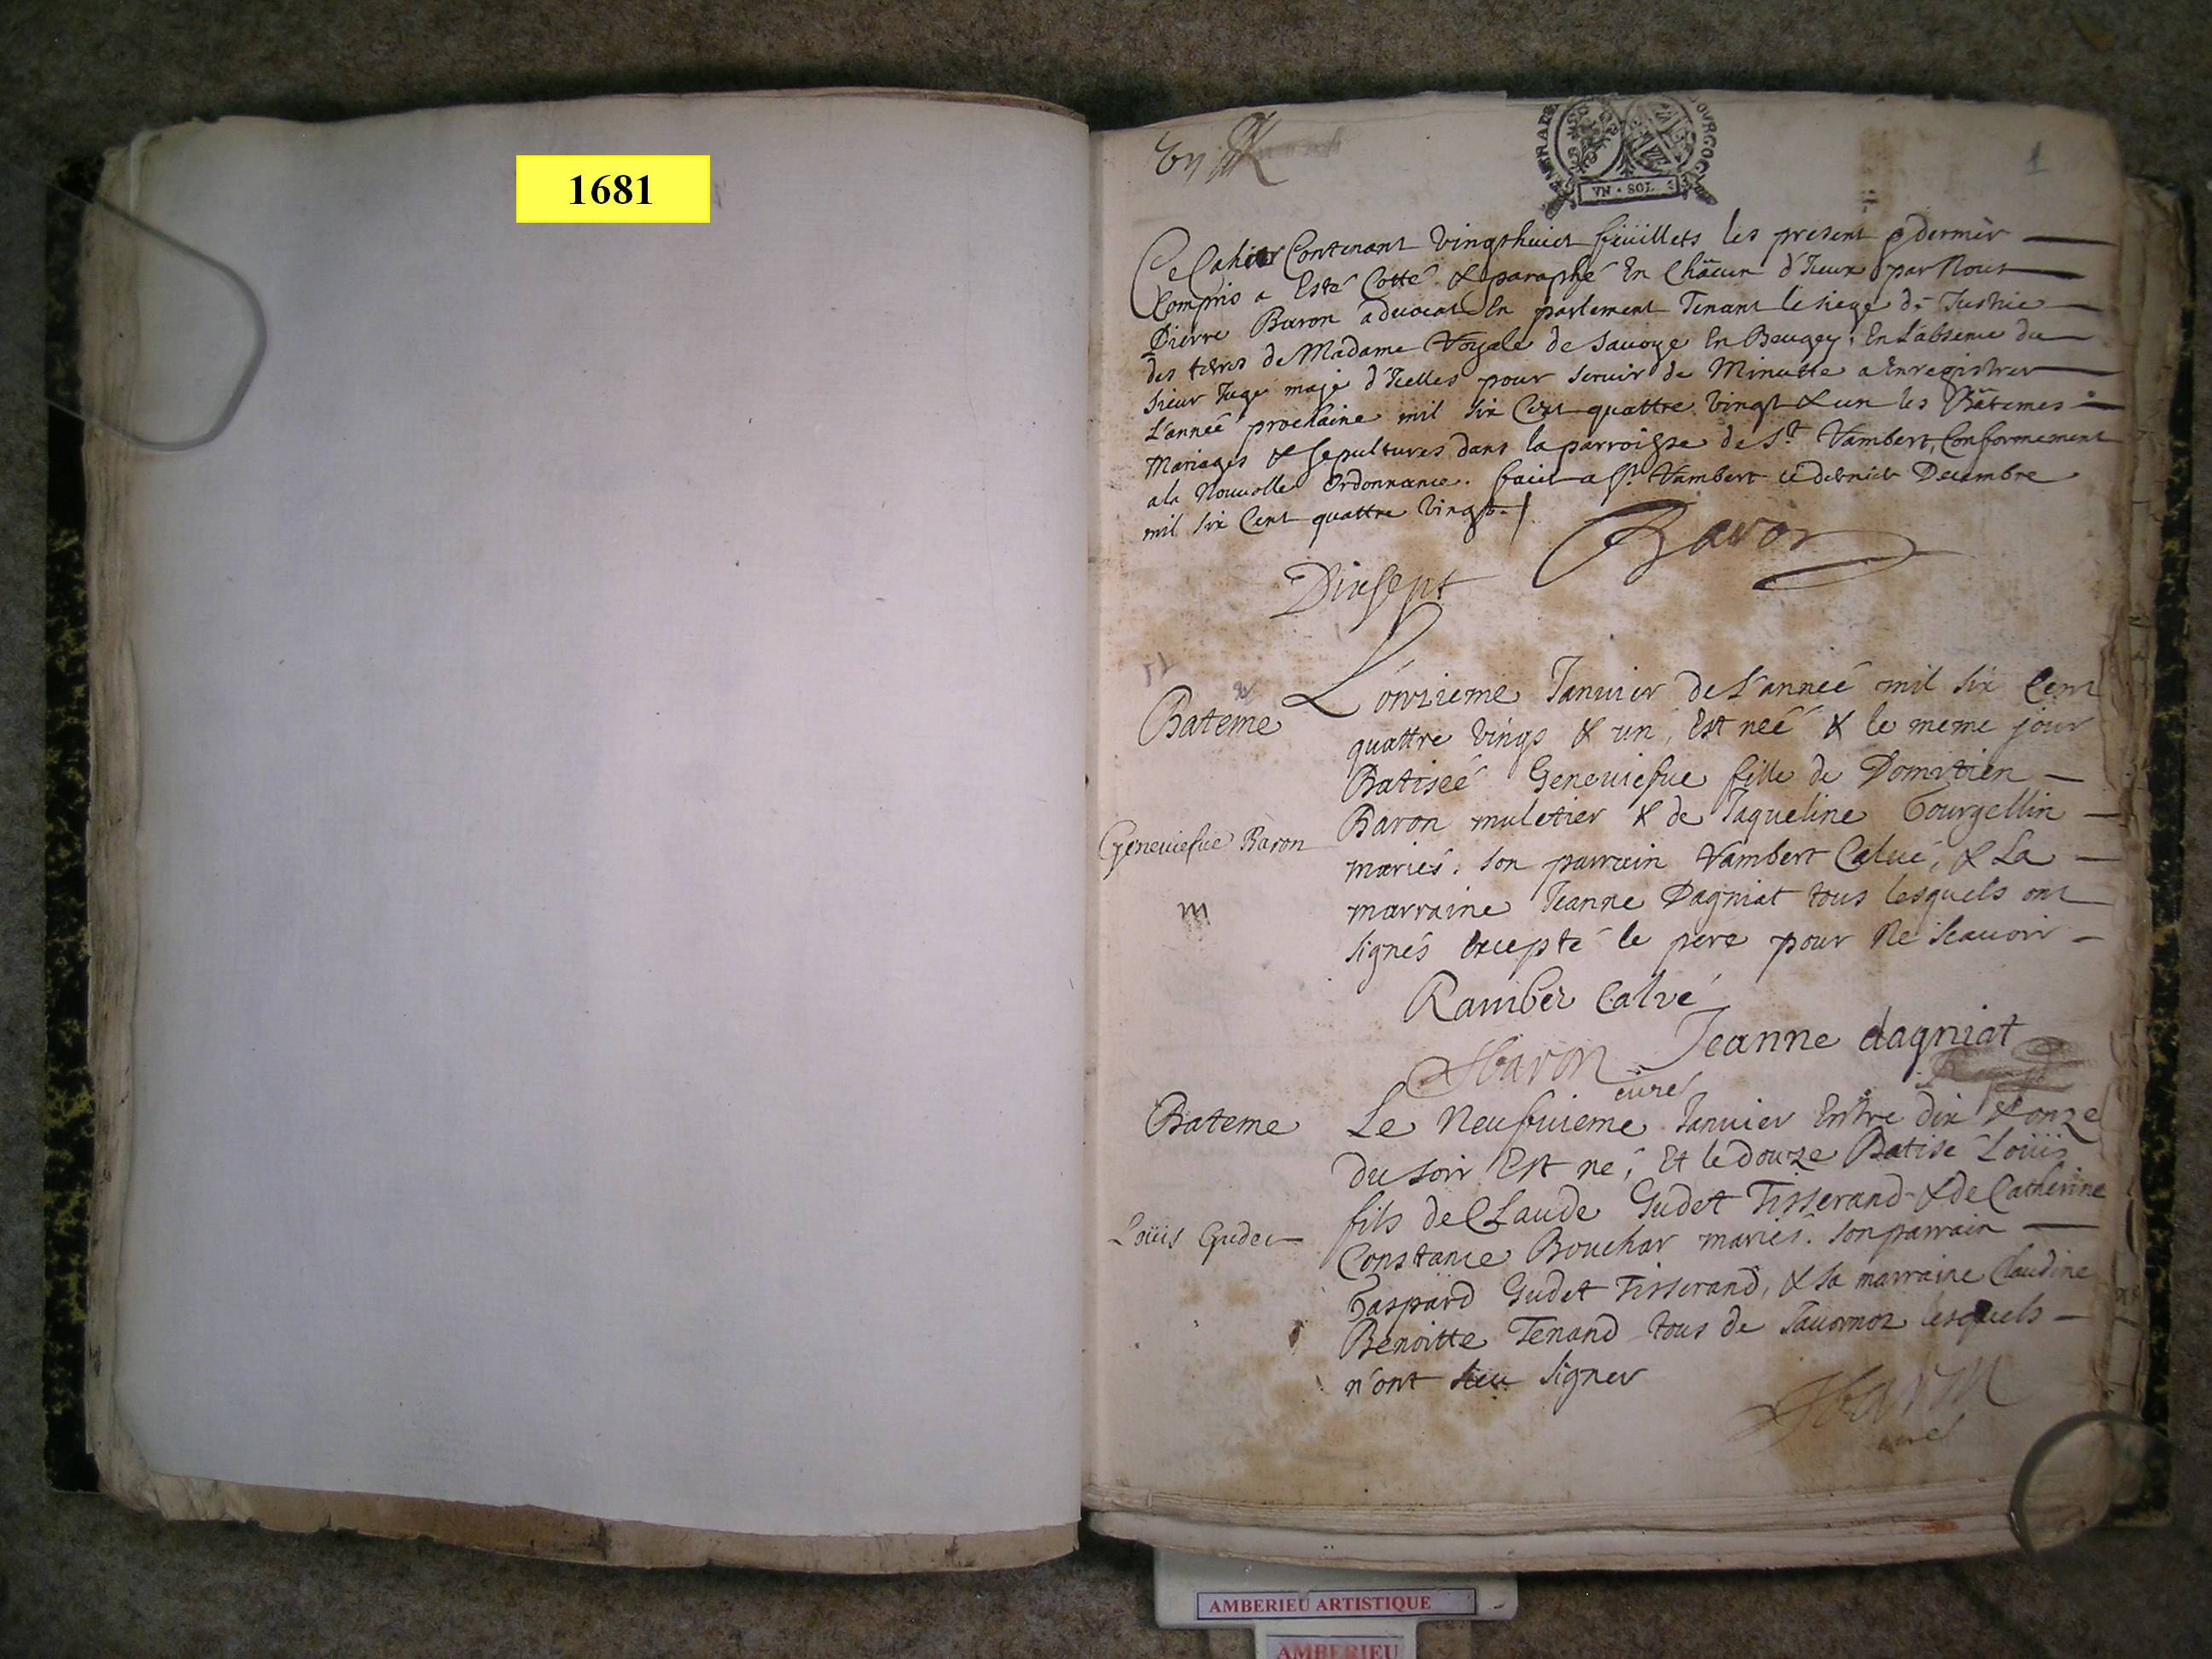 1681
1
VN · SOL
Ce Cahier Contenant vingthuict feüillets les present & dernier
Compris a Esté Cotté & paraphé En Chãcun d'Iceux par Nous
Pierre Baron aduocat En parlement Tenant le siege de Justice
des terres de Madame Royale de Sauoye En Beugey, En L'absence du
sieur Juge maje d'Icelles pour seruir de Minutte a Enregistrer
L'année prochaine mil six Cent quattre vingt & un les Bâtemes
Mariages & sepultures dans la parroisse de St. Rambert, Conformement
a la Nouuelle Ordonnance. faict a St. Rambert ce dernier Decembre
mil six Cent quattre vingt.
Baron
Dixsept
L'onzieme Januier de L'année mil six Cent
Bateme
quattre vings & un, Est neé & le meme jour
Batiseé Geneuiefue fille de Domitien
Baron muletier & de Jaqueline Tourgellin
Geneuiefue Baron
mariés. son parrain Rambert Calué, & La
marraine Jeanne Dagniat tous lesquels ont
m
signés Excepté le pere pour Ne scauoir
Ramber Calvé
Jeanne dagniat
Baron
curé
Bateme
Le Neufuieme Januier Entre dix & onze
du soir Est né, Et le douze Batisé Loüis
fils de Claude Gudet Tisserand & de Catherine
Loüis Gudet
Constance Bouchar mariés. son parrain
Gaspard Gudet Tisserand, & sa marraine Claudine
Benoitte Tenand tous de Jauornoz lesquels
n'ont sceu signer
Baron
curé
AMBERIEU ARTISTIQUE
AMBERIEU